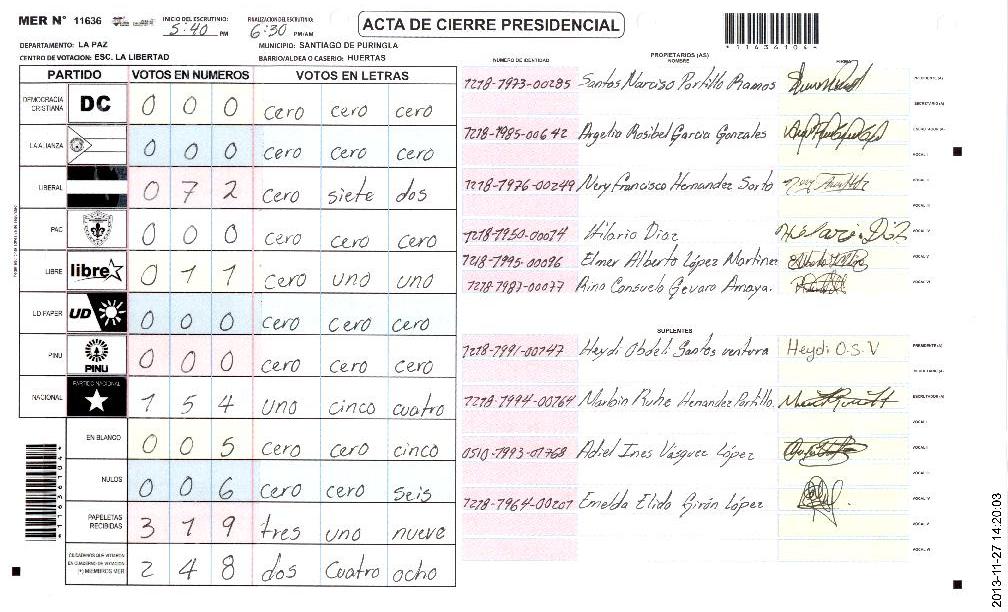 MER N° 11636
INICIO DEL ESCRUTINIO: 5:40 PM
FINALIZACION DEL ESCRUTINIO: 6:30 PM/AM
ACTA DE CIERRE PRESIDENCIAL
11636104
DEPARTAMENTO: LA PAZ
MUNICIPIO: SANTIAGO DE PURINGLA
CENTRO DE VOTACION: ESC. LA LIBERTAD
BARRIO/ALDEA O CASERIO: HUERTAS
PARTIDO VOTOS EN NUMEROS VOTOS EN LETRAS
DEMOCRACIA CRISTIANA DC 0 0 0 cero cero cero
LA ALIANZA 0 0 0 cero cero cero
LIBERAL 0 7 2 cero siete dos
PAC 0 0 0 cero cero cero
LIBRE libre 0 1 1 cero uno uno
UD FAPER UD 0 0 0 cero cero cero
PINU PINU 0 0 0 cero cero cero
NACIONAL PARTIDO NACIONAL 1 5 4 uno cinco cuatro
EN BLANCO 0 0 5 cero cero cinco
NULOS 0 0 6 cero cero seis
PAPELETAS RECIBIDAS 3 1 9 tres uno nueve
CIUDADANOS QUE VOTARON EN CUADERNO DE VOTACION (+) MIEMBROS MER 2 4 8 dos cuatro ocho
11636104
NUMERO DE IDENTIDAD
PROPIETARIOS (AS)
NOMBRE
FIRMA
1218-1973-00285 Santos Narciso Portillo Ramos PRESIDENTE(A)
SECRETARIO(A)
1218-1985-00642 Argelia Rosibel Garcia Gonzales ESCRUTADOR(A)
VOCAL I
1218-1976-00249 Nery Francisco Hernandez Sorto VOCAL II
VOCAL III
1218-1950-00074 Hilario Diaz Hilario Diaz VOCAL IV
1218-1995-00096 Elmer Alberto López Martinez VOCAL V
1218-1987-00077 Consuelo Amaya. VOCAL VI
SUPLENTES
1218-1991-00147 Heydi Obdeli Santos ventura Heydi O.S.V PRESIDENTE(A)
SECRETARIO(A)
1218-1994-00164 Marbin Hernandez Portillo. ESCRUTADOR(A)
VOCAL I
0510-1993-01768 Adiel Ines Vásquez López VOCAL II
VOCAL III
1218-1964-00207 Emelda Elida Girón López VOCAL IV
VOCAL V
VOCAL VI
2013-11-27 14:20:03